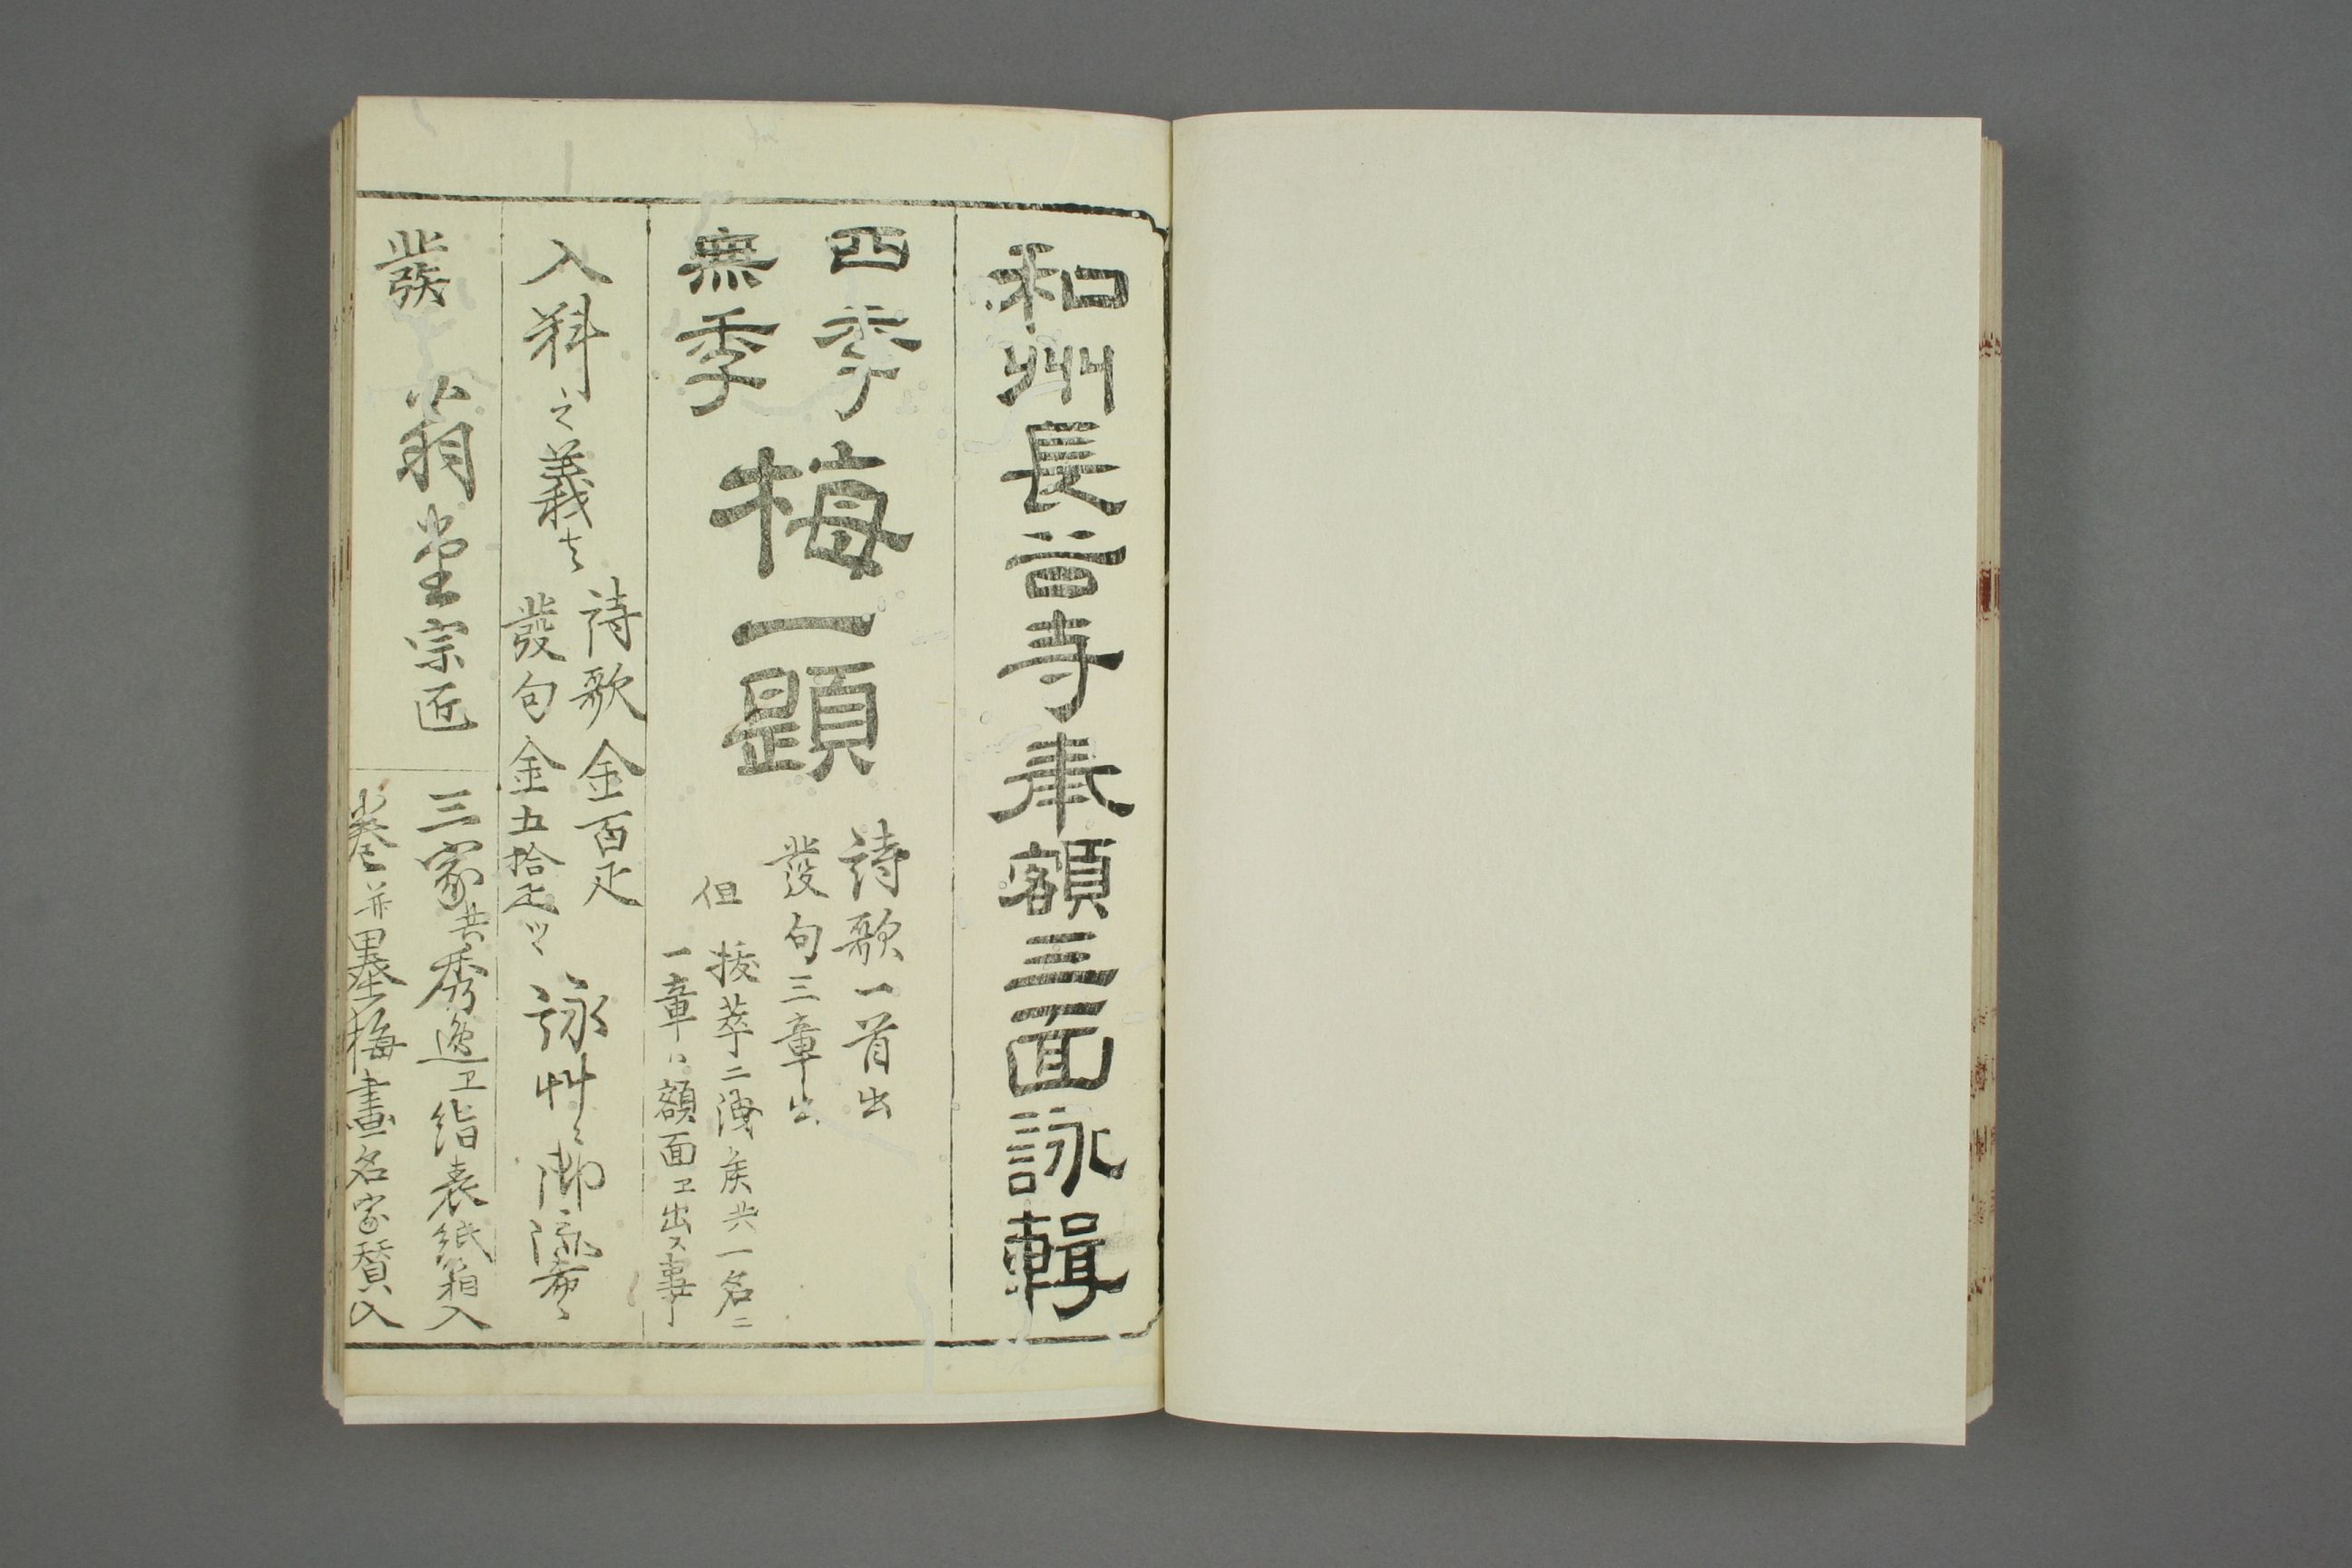 和州長谷寺奉額三面詠輯
四季
無季
梅一題
詩歌一首出
發句三章出
但
抜萃二洩候共一名ニ
一章ハ額面ヱ出ス事
入料之義者
詩歌金百疋
發句金五拾疋ツヽ
詠艸
發
翁堂宗匠
三家共秀逸ヱ絹表紙箱入
巻并墨梅畫名家賛入